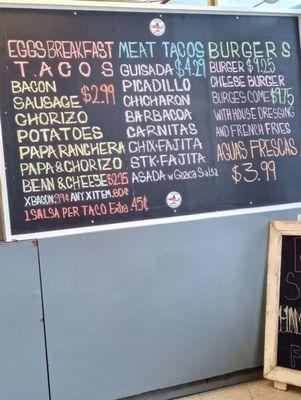 EGGS BREAKFAST
TACOS
BACON
SAUSAGE $2.99
CHORIZO
POTATOES
PAPA RANCHERA
PAPA & CHORIZO
BEAN & CHEESE $2.75
X BACON .99¢ ANY X ITEM .60¢
1 SALSA PER TACO Extra .45¢
MEAT TACOS
GUISADA $4.29
PICADILLO
CHICHARON
BARBACOA
CARNITAS
CHIX-FAJITA
STK-FAJITA
ASADA w Guaca Salsa
BURGERS
BURGER $9.25
CHEESE BURGER
BURGERS COME $9.75
WITH HOUSE DRESSING
AND FRENCH FRIES
AGUAS FRESCAS
$3.99